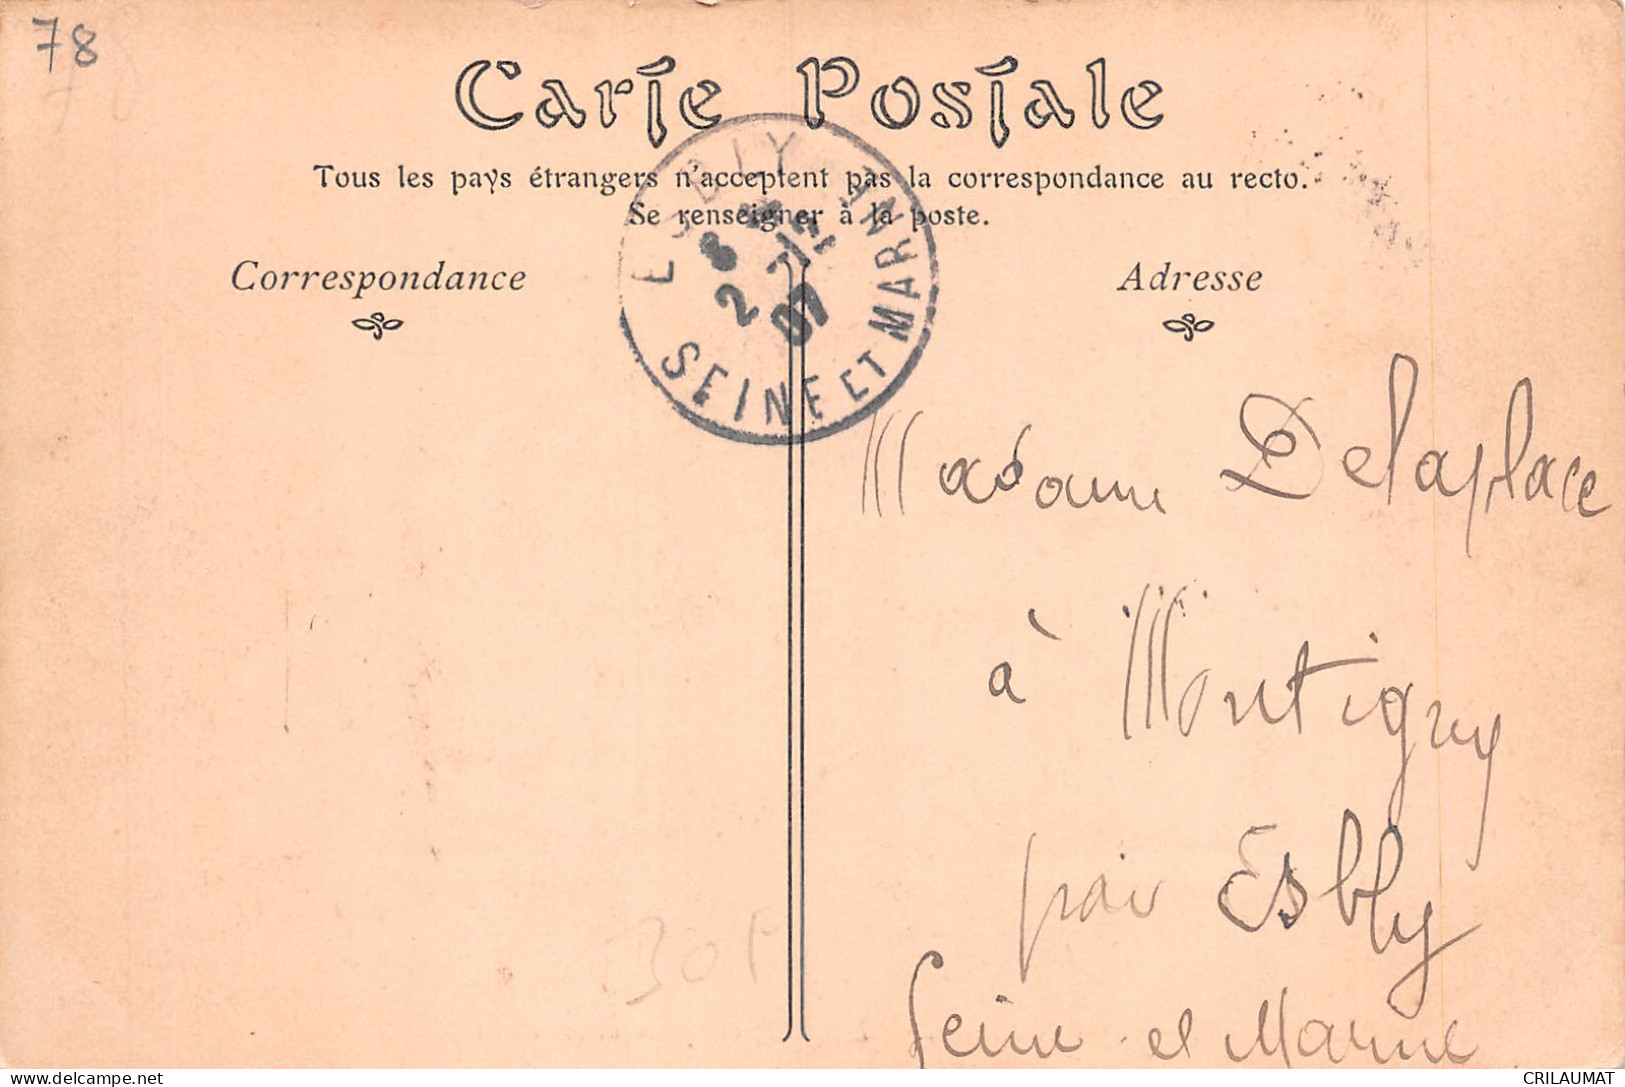 78
Carte Postale
Tous les pays étrangers n'acceptent pas la correspondance au recto.
Se renseigner à la poste.
Correspondance
Adresse
ESBLY
8
2 -12
07
SEINE ET MARNE
Madame Delaplace
à Montigny
par Esbly
Seine et Marne
CRILAUMAT